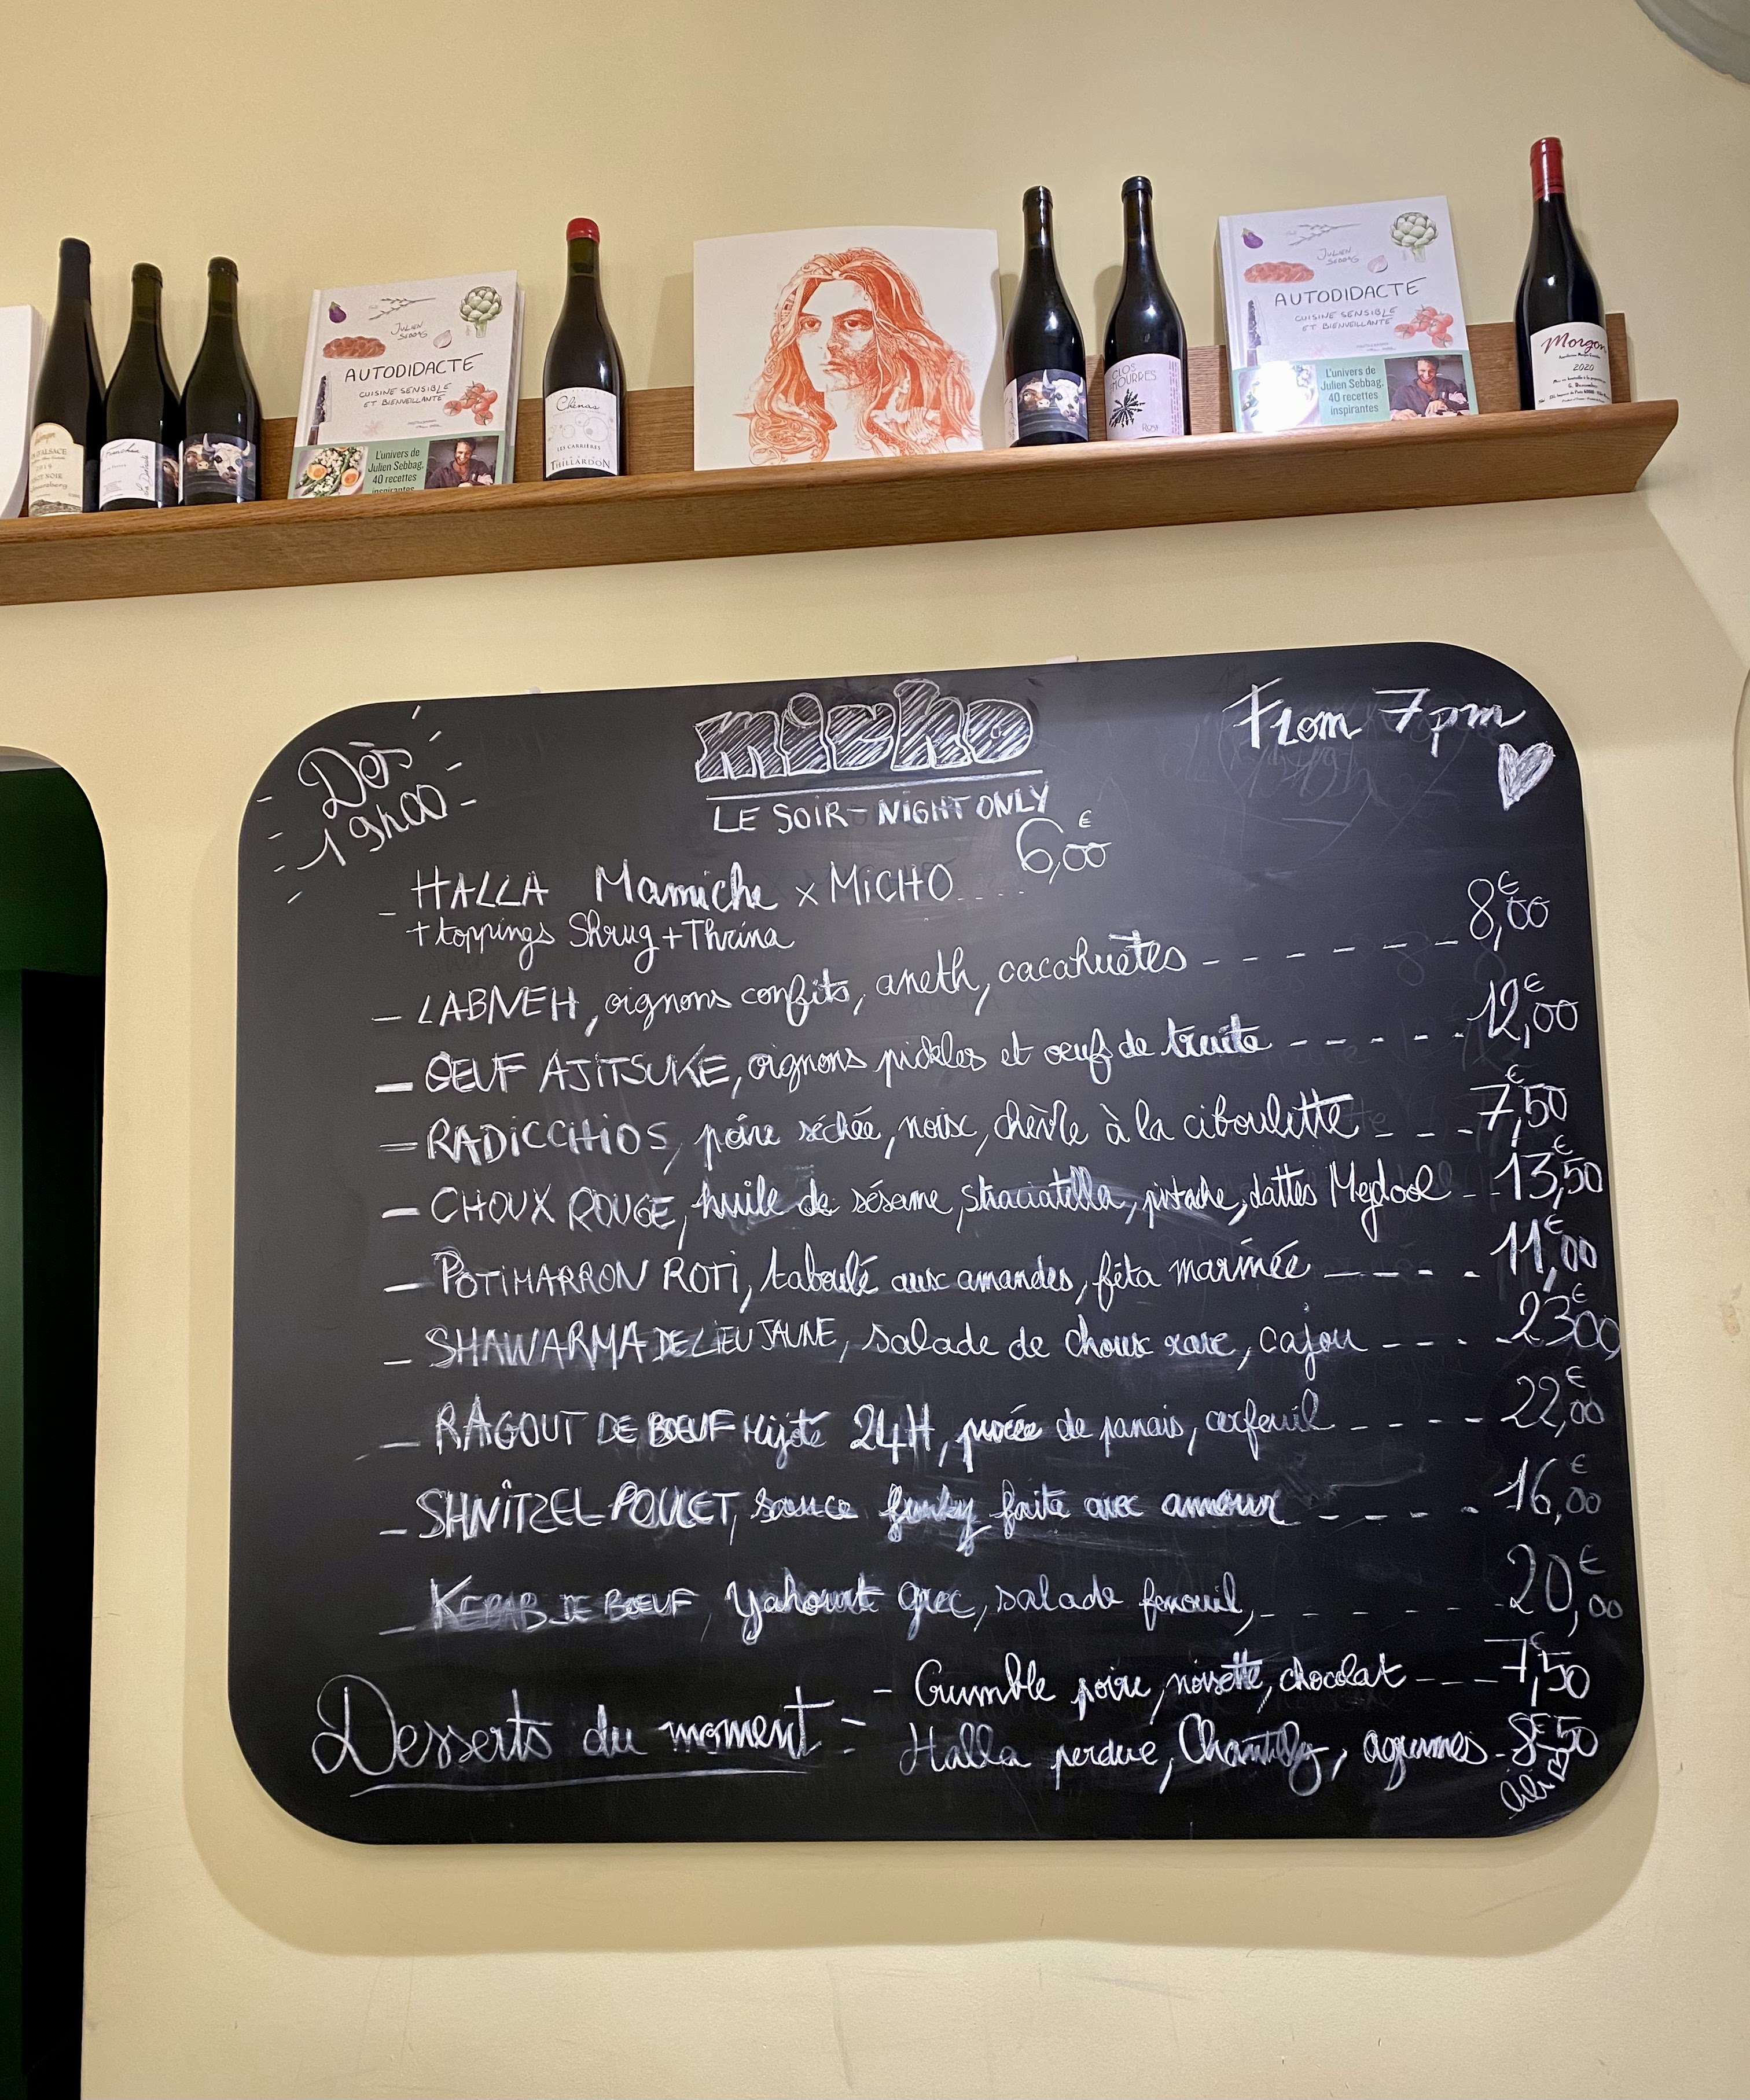 JULIEN SEBBAG
AUTODIDACTE
CUISINE SENSIBLE
ET BIENVEILLANTE
L'univers de
Julien Sebbag,
40 recettes
inspirantes
Chénas
LES CARRIÈRES
THILLARDON
CLOS
MOURRES
ROSE
JULIEN SEBBAG
AUTODIDACTE
CUISINE SENSIBLE
ET BIENVEILLANTE
L'univers de
Julien Sebbag,
40 recettes
inspirantes
Morgon
2020
D'ALSACE
PINOT NOIR
Dès
19h00
micho
LE SOIR - NIGHT ONLY
From 7pm
- HALLA Mamiche x MICHO... 6,00€
+ toppings Shrug + Thrina
- LABNEH, oignons confits, aneth, cacahuètes ------ 8,00€
- OEUF AJITSUKE, oignons pickles et oeuf de truite ------ 12,00€
- RADICCHIOS, poire séchée, noix, chèvre à la ciboulette --- 7,50€
- CHOUX ROUGE, huile de sésame, straciatella, pistache, dattes Medjool -- 13,50€
- POTIMARRON ROTI, taboulé aux amandes, féta marinée ---- 11,00€
- SHAWARMA DE LIEU JAUNE, salade de choux rave, cajou ---- 23,00€
- RAGOUT DE BOEUF Mijoté 24H, purée de panais, cerfeuil ---- 22,00€
- SHNÎTZEL POULET, sauce funky faite avec amour ----- 16,00€
- KEBAB DE BOEUF, Yahourt grec, salade fenouil, ------ 20,00€
Desserts du moment :
- Crumble poire, noisette, chocolat --- 7,50€
Halla perdue, Chantilly, agrumes - 8,50€